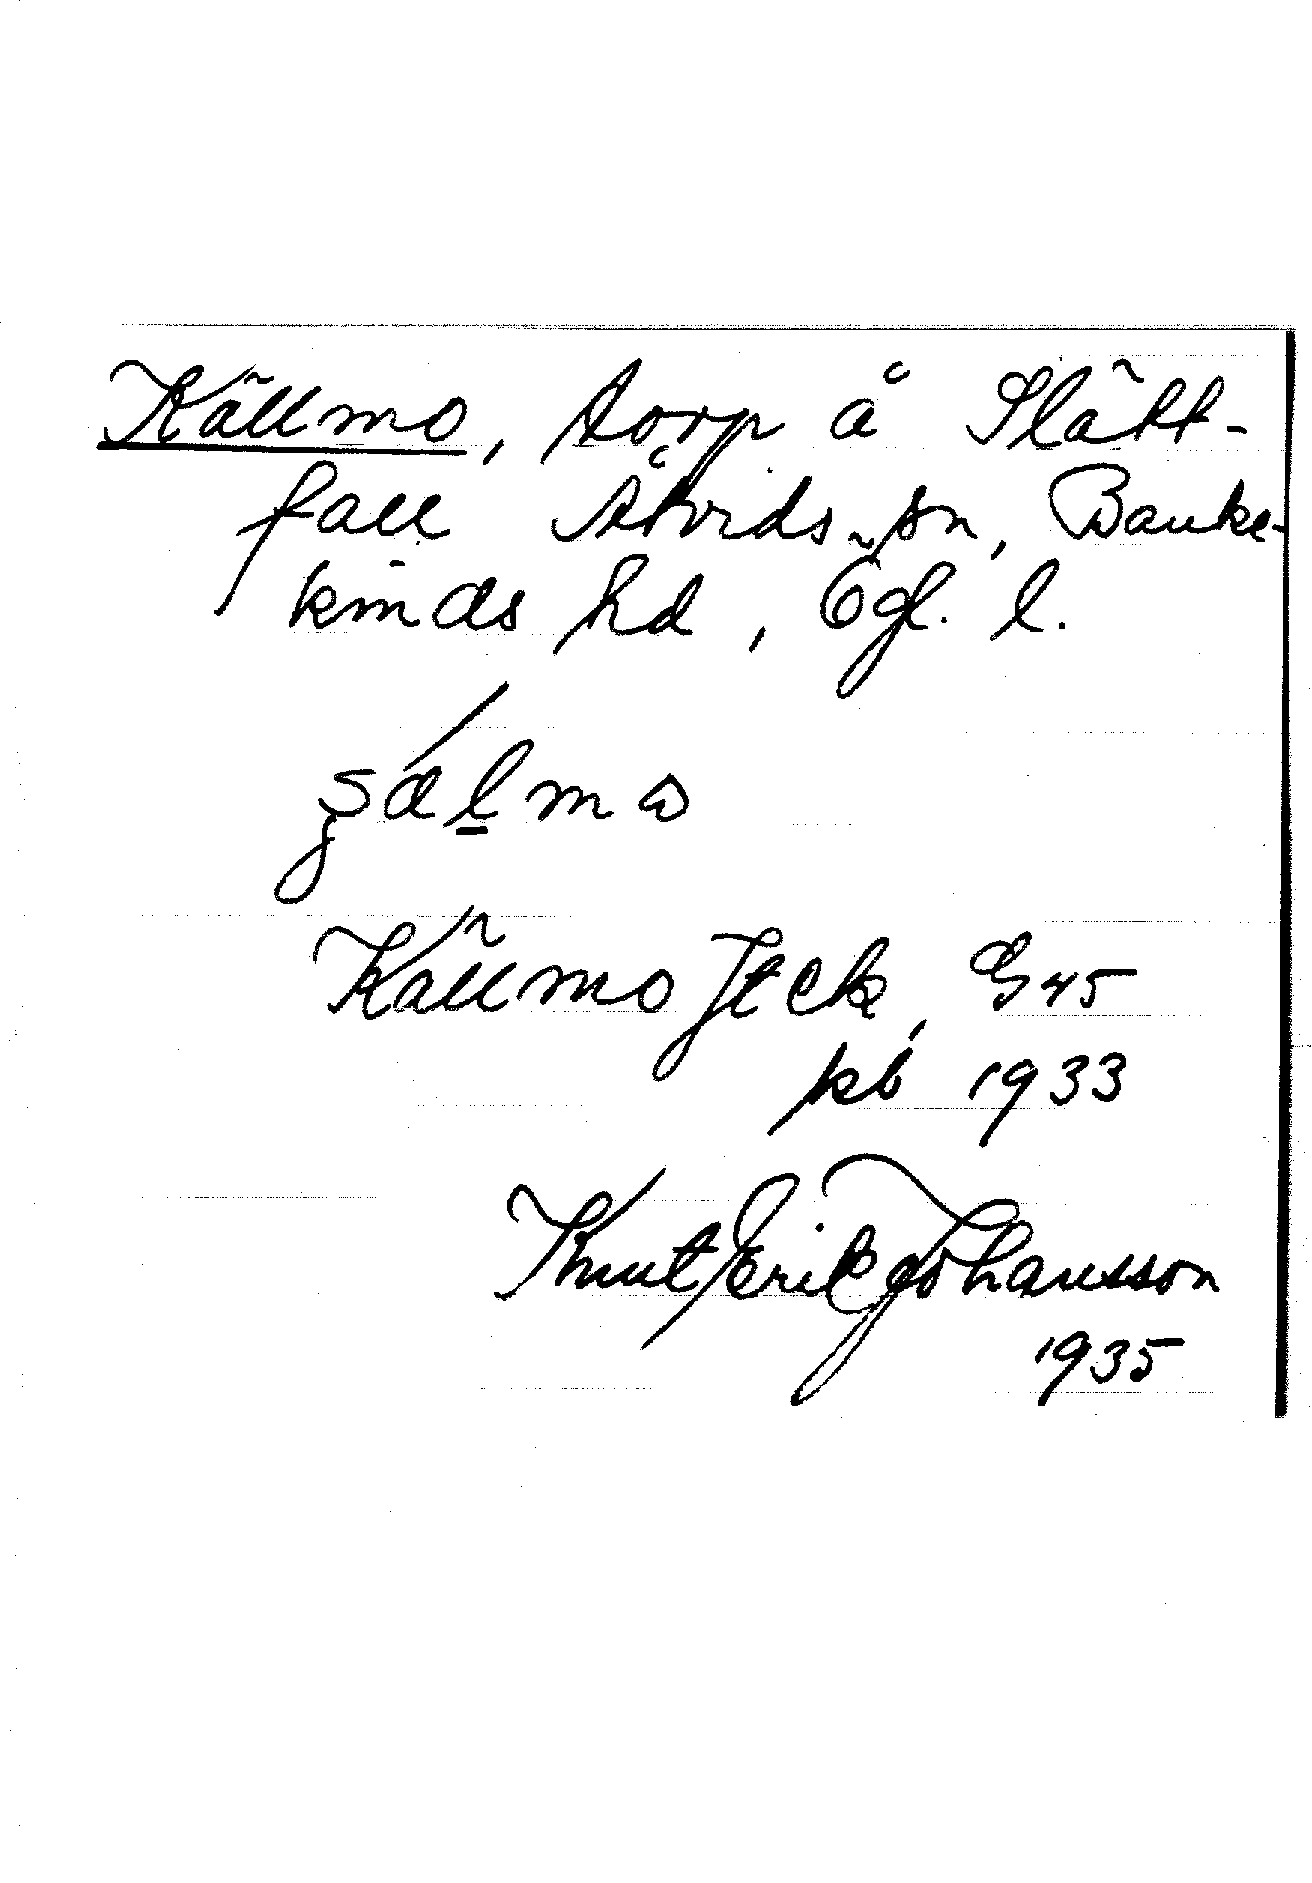 Källmo, torp å Slätt-
fall Åtvids sn, Banke-
kinds hd, Ögl. l.
Källmo Jeck, G 45
kb 1933
Knut Erik Johansson
1935